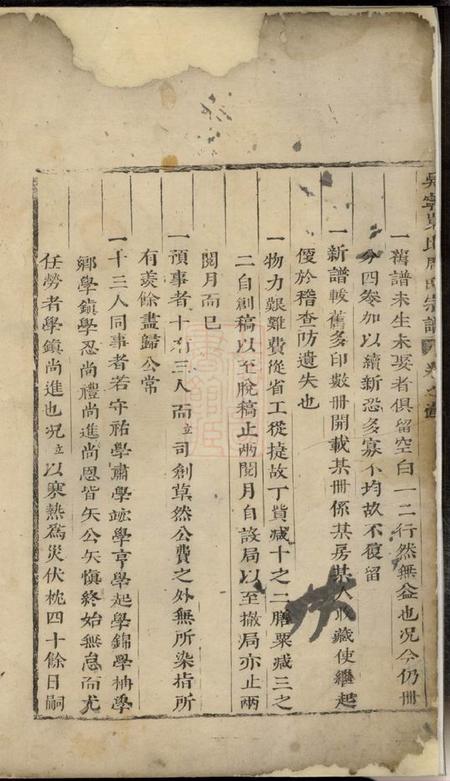 一舊譜未生未娶者俱留空白一二行然無益也况今仍冊
分四叅加以續新恐多寡不均故不復留
一新譜較舊多印數冊開載某冊係某房某人收藏使繼起
便於稽查防遺失也
一物力艱難費從省工從捷故丁貲减十之二膳粟减三之
二自創稿以至脫稿止兩閱月自設局以至撤局亦止兩
閱月而已
一預事者十有三人而立司創草然公費之外無所染指所
有羨餘盡歸公常
一十三人同事者若守祐學肅學學亨學起學錦學學
鄉學鎮學忍尚禮尚進尚恩皆矢公矢慎終始無怠而尤
任勞者學鎮尚進也况立以寒熱為災伏枕四十餘日嗣